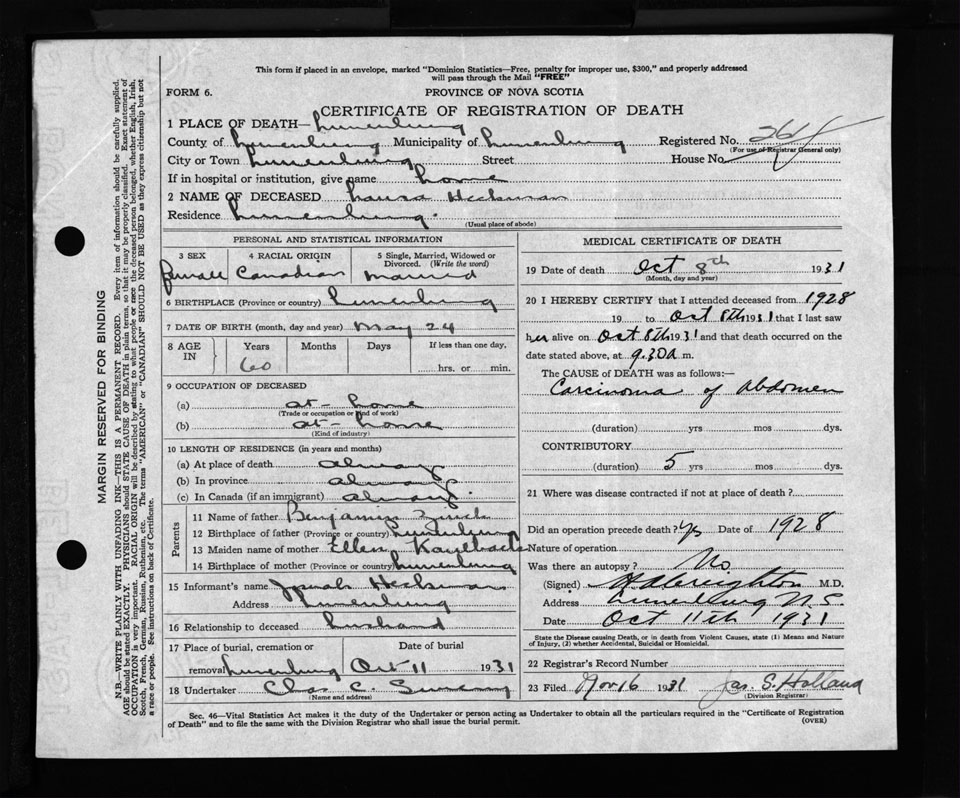 This form if placed in an envelope, marked "Dominion Statistics—Free, penalty for improper use, $300," and properly addressed
will pass through the Mail "FREE"
FORM 6.
PROVINCE OF NOVA SCOTIA
CERTIFICATE OF REGISTRATION OF DEATH
1 PLACE OF DEATH— Lunenburg
County of Lunenburg Municipality of Lunenburg Registered No.
(For use of Registrar General only)
City or Town Lunenburg Street House No.
If in hospital or institution, give name home
2 NAME OF DECEASED Laura Heckman
Residence Lunenburg.
(Usual place of abode)
PERSONAL AND STATISTICAL INFORMATION
3 SEX 4 RACIAL ORIGIN 5 Single, Married, Widowed or
Divorced. (Write the word)
female Canadian married
6 BIRTHPLACE (Province or country) Lunenburg
7 DATE OF BIRTH (month, day and year) May 24
8 AGE IN Years Months Days If less than one day,
60 hrs. or min.
9 OCCUPATION OF DECEASED
(a) at-home
(Trade or occupation or kind of work)
(b) at-home
(Kind of industry)
10 LENGTH OF RESIDENCE (in years and months)
(a) At place of death always
(b) In province always
(c) In Canada (if an immigrant) always.
Parents
11 Name of father Benjamin Zinck
12 Birthplace of father (Province or country) Lunenburg
13 Maiden name of mother Ellen Kaulback
14 Birthplace of mother (Province or country) Lunenburg
15 Informant's name Heckman
Address Lunenburg
16 Relationship to deceased husband
17 Place of burial, cremation or Date of burial
removal Lunenburg Oct 11 1931
18 Undertaker Chas C.
(Name and address)
MEDICAL CERTIFICATE OF DEATH
19 Date of death Oct 8th 1931
(Month, day and year)
20 I HEREBY CERTIFY that I attended deceased from 1928
19 to Oct 8th 1931 that I last saw
her alive on Oct 8th 1931 and that death occurred on the
date stated above, at 9.30a m.
The CAUSE of DEATH was as follows:—
Carcinoma of Abdomen
(duration) yrs mos dys.
CONTRIBUTORY
(duration) 5 yrs mos dys.
21 Where was disease contracted if not at place of death?
Did an operation precede death? Yes Date of 1928
Nature of operation
Was there an autopsy? No
(Signed) Creighton M.D.
Address Lunenburg N.S.
Date Oct 11th 1931
State the Disease causing Death, or in death from Violent Causes, state (1) Means and Nature
of Injury, (2) whether Accidental, Suicidal or Homicidal.
22 Registrar's Record Number
23 Filed Nov 16 1931 Jas. S. Holland
(Division Registrar)
Sec. 46—Vital Statistics Act makes it the duty of the Undertaker or person acting as Undertaker to obtain all the particulars required in the "Certificate of Registration
of Death" and to file the same with the Division Registrar who shall issue the burial permit.
(OVER)
MARGIN RESERVED FOR BINDING
N.B.—WRITE PLAINLY WITH UNFADING INK—THIS IS A PERMANENT RECORD. Every item of information should be carefully supplied.
AGE should be stated EXACTLY. PHYSICIANS should STATE CAUSE OF DEATH in plain terms, so that it may be properly classified. Exact statement of
OCCUPATION is very important. RACIAL ORIGIN will be described by stating to what people or race the deceased person belonged, whether English, Irish,
Scotch, French, German, Russian, Ruthenian, etc. The terms "AMERICAN" or "CANADIAN" SHOULD NOT BE USED as they express citizenship but not
a race or people. See instructions on back of Certificate.